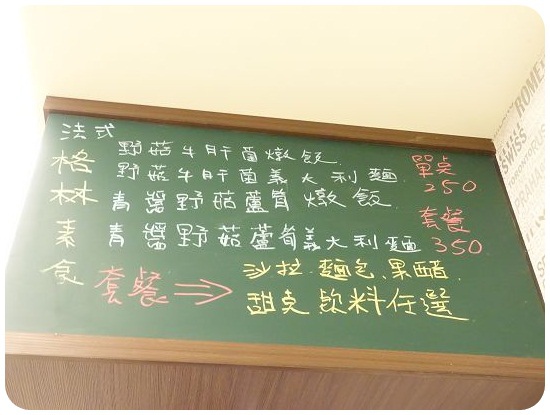 法式
格林素食
野菇牛肝菌燉飯
野菇牛肝菌義大利麵
青醬野菇蘆筍燉飯
青醬野菇蘆筍義大利麵
單點
250
套餐
350
套餐⇒
沙拉.麵包.果醋.
甜点 飲料任選
ROME
SWISS